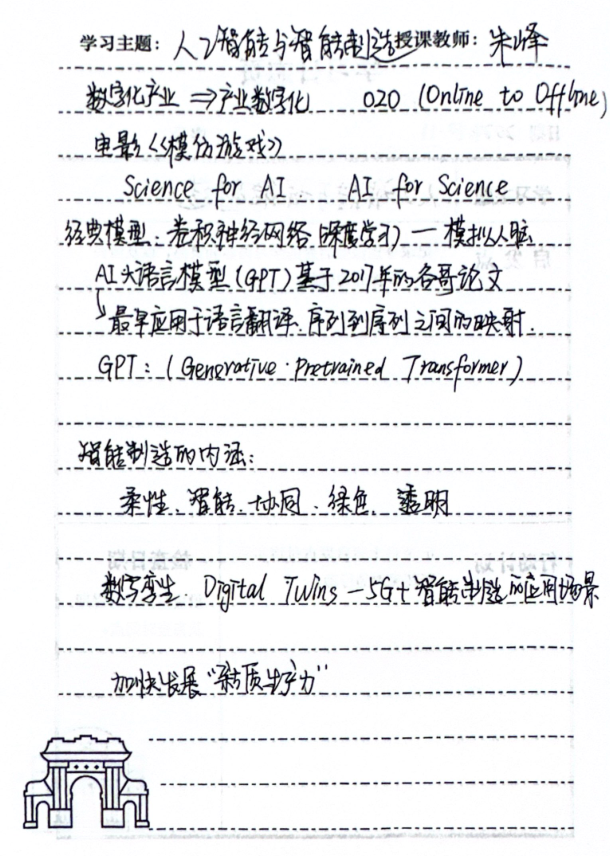 学习主题：人工智能与智能制造 授课教师：朱峰
数字化产业 ⇒ 产业数字化 O2O (Online to Offline)
电影《模仿游戏》
Science for AI AI for Science
经典模型：卷积神经网络（深度学习）— 模拟人脑
AI大语言模型（GPT）基于2017年的谷哥论文
↳ 最早应用于语言翻译、序列到序列之间的映射.
GPT：（Generative · Pretrained Transformer）
智能制造的内涵：
柔性、智能、协同、绿色、透明
数字孪生. Digital Twins — 5G+智能制造的应用场景
加快发展“新质生产力”